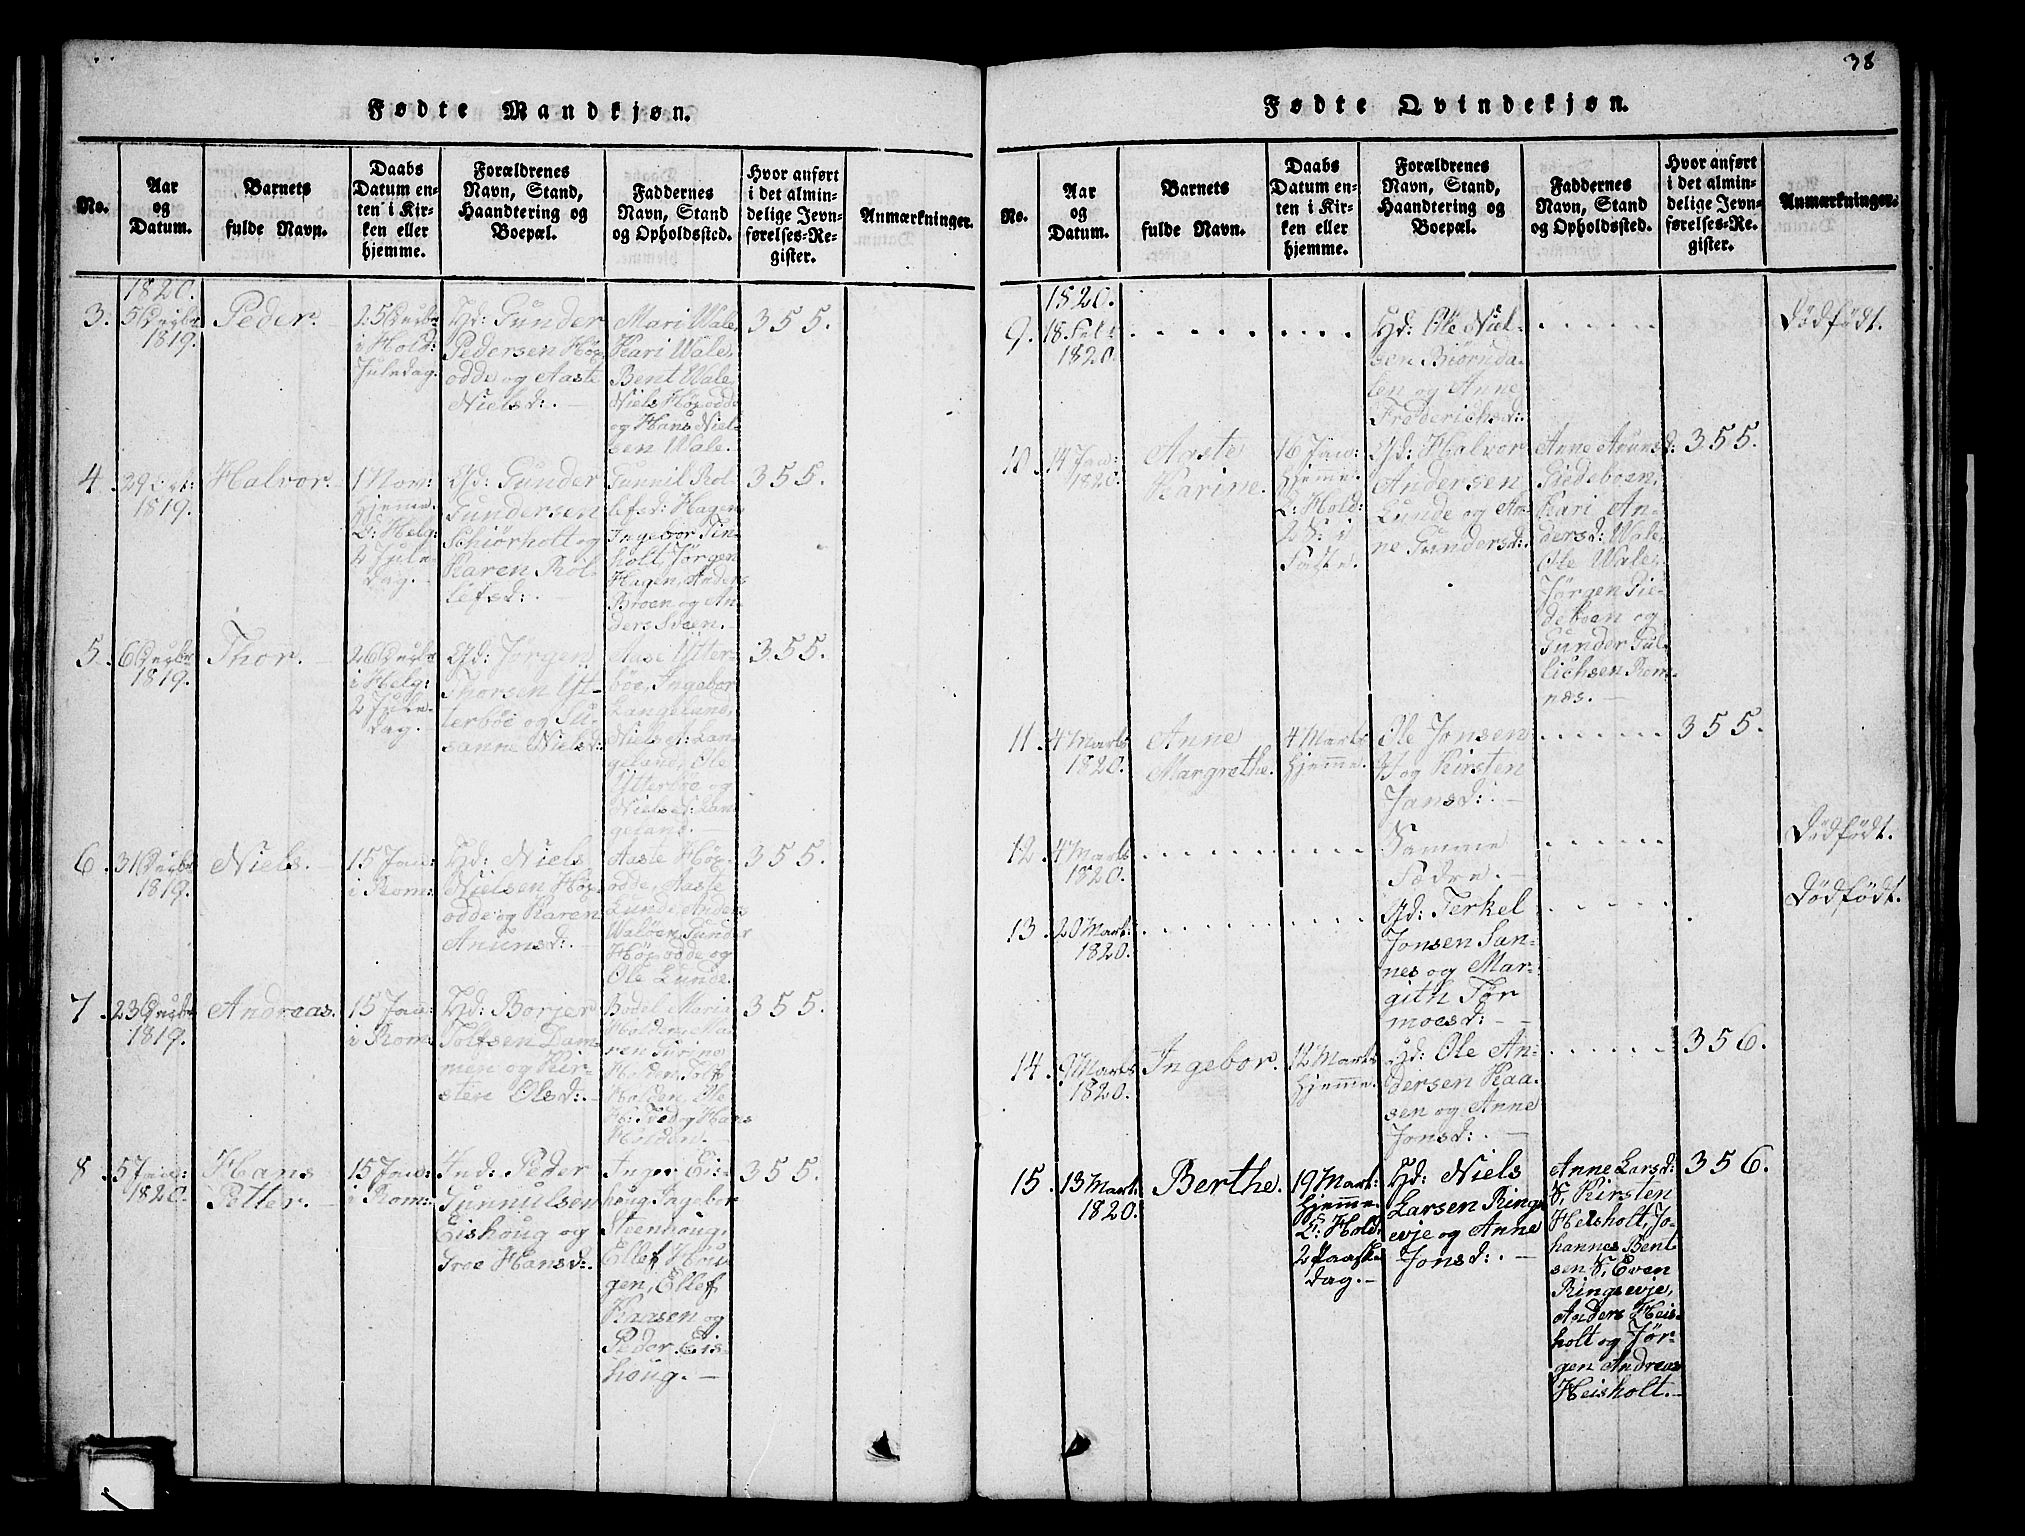 38
Fødte Mandkjøn.
No.
Aar
og
Datum.
Barnets
fulde Navn.
Daabs
Datum en-
ten i Kir-
ken eller
hjemme.
Forældrenes
Navn, Stand,
Haandtering og
Boepæl.
Faddernes
Navn, Stand
og Opholdssted.
Hvor anført
i det almin-
delige Jevn-
førelses-Re-
gister.
Anmærkninger.
1820.
3.
1819.
Peder.
i Hold:
Juledag.
Gd: Gunder
Pedersen Høy-
odde og Aaste
Nielsd:. —
Mari Wale,
Kari Wale,
Bent Wale,
Niels Høyodde
og Hans Niel-
sen Wale.
355.
4.
1819.
Halvor. —
1 Nov:
hjeme.
L: Helg:
2 Jule-
dag. —
Gd: Gunder
Gundersen
Schiørholt og
Karen Rol-
lefsd:. —
Gunnil Rol-
lefsd: Hagen,
Ingebor Tin-
holt, Jørgen
Hagen, Anders
Broen og An-
ders Sveen. —
355.
5.
1819.
Thor. —
i Helg:
2 Jule-
dag. —
Gd: Jørgen
Thorsen Yt-
terbøe og Su-
sanne Nielsd:
Aase Ytter-
bøe, Ingebor
Langeland,
Langeland, Ole
Ytterbøe og
geland. —
355.
6.
1819.
Niels. —
15 Jan:
i Rom:
Gd: Niels
Nielsen Høy-
odde og Karen
Anunsd:. —
Aaste Høy-
odde, Aaste
Lunde, Anders
Waløen, Gunder
Høyodde og
Ole Lunde.
355.
7.
1819.
Andreas.
15 Jan:
i Rom:
Gd: Borjer
Tolfsen Dam-
men og Kir-
stere Olsd:. —
Bodel Maria
Holden, Ma-
ren Gurine
Holden, Tolf
Holden, Ole
H: Tved og Hans
Holden. —
355.
8.
5 Jan:
1820.
Hans
Petter. —
15 Jan:
i Rom:
Ind: Peder
Gunnulsen
Eishoug og
Groe Hansd:.
Inger Eis-
houg, Ingebor
Steenhoug,
Ellef
gen, Ellef
Kaasen og
Peder Eis-
houg. —
355.
Fødte Qvindekjøn.
No.
Aar
og
Datum.
Barnets
fulde Navn.
Daabs
Datum en-
ten i Kir-
ken eller
hjemme.
Forældrenes
Navn, Stand,
Haandtering og
Boepæl.
Faddernes
Navn, Stand
og Opholdssted.
Hvor anført
i det almin-
delige Jevn-
førelses-Re-
gister.
Anmærkninger.
1820.
9.
18 Feb:
1820.
Gd: Ole Niel-
sen Biørnda-
len og Anne
Frederichsd:.
Dødfødt.
10.
14 Jan:
1820.
Aaste
Karine.
16 Jan:
hjeme.
L: Hold:
2 S: i
Faste.
Gd: Halvor
Andersen
Lunde og An-
ne Gundersd:.
Anne Anunsd:
Kari An-
dersd: Wale,
Ole Wale,
Jørgen
og
Gunder Gul-
lichsen Rom-
næs. —
355.
11.
4 Marts
1820.
Anne
Margrethe.
4 Marts
hjemme.
Ole Jonsen
og Kirsten
Jansd:. —
355.
12.
4 Marts
1820.
Samme
Fædre. —
Dødfødt.
13.
20 Mart:
1820.
Gd: Terkel
Jonsen San-
nes og Mar-
gith Tør-
moesd: —
Dødfødt.
14.
9 Marts
1820.
Ingebor.
12 Marts
hjemme.
Gd: Ole An-
dersen Kaa-
sen og Anne
Jonsd:. —
356.
15.
13 Mart:
1820.
Berthe.
19 Mart:
hjemme.
L: Hold:
2 Paaske-
dag. —
Gd: Niels
Larsen Rings-
evje og Anne
Jonsd:. —
Anne Larsd:
S, Kirsten
Heisholt, Jo-
hannes Bent-
sen S, Even
Ringsevje,
Anders Heis-
holt og Jør-
gen Andreas
Heisholt. —
356.